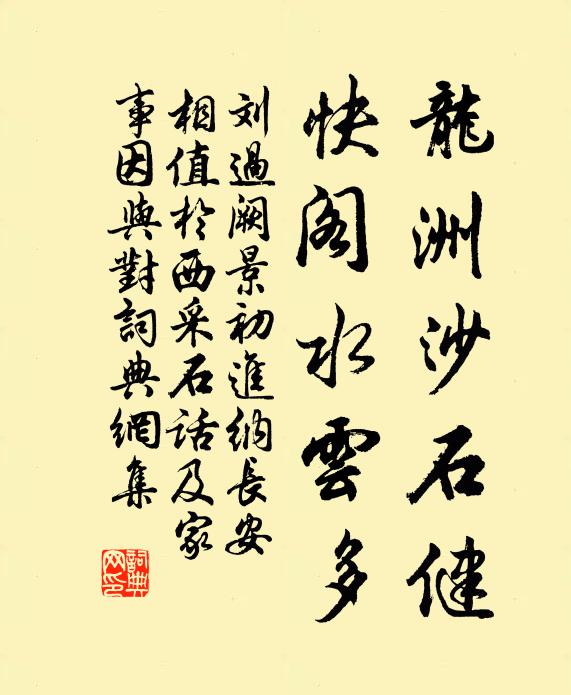 龍洲沙石健
快阁水雲多
刘過阙景初進纳長安
相值於西采石話及家
事因與對詞典網集
詞典
网印